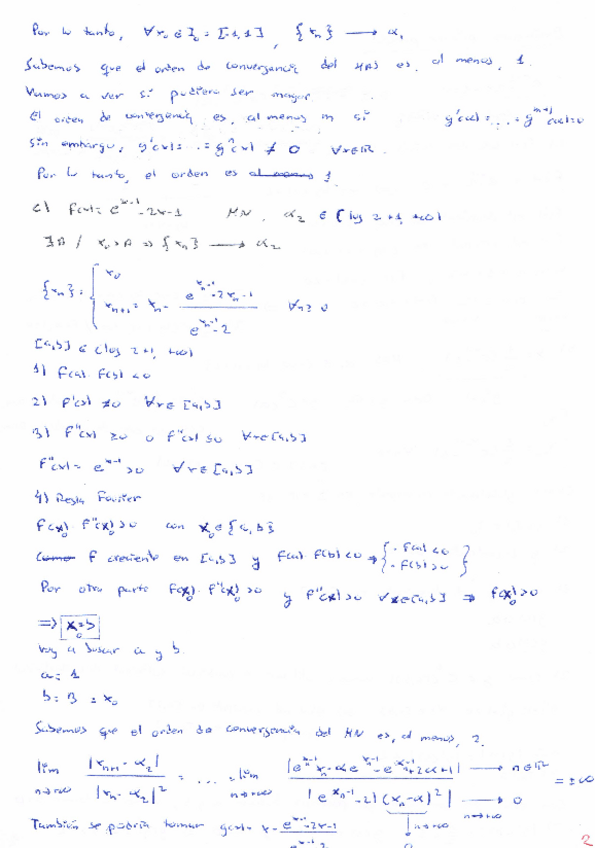 Por lo tanto, ∀x₀ ∈ I₀ = [-1,1], {xₙ} ⟶ α₁
Sabemos que el orden de convergencia del MAS es, al menos, 1.
Vamos a ver si pudiera ser mayor.
El orden de convergencia es, al menos m si g'(α) = ... = g^{m-1}(α) = 0
Sin embargo, g'(x) = ... = g^{n}(x) ≠ 0 ∀x∈ℝ.
Por lo tanto, el orden es al menos 1.
c) f(x) = e^{x-1} - 2x - 1 MN, α₂ ∈ (log 2+1, +∞)
∃B / x₀>B ⇒ {xₙ} ⟶ α₂
{xₙ} = { x₀
xₙ₊₁ = xₙ - (e^{xₙ-1} - 2xₙ - 1)/(e^{xₙ-1} - 2) ∀n ≥ 0
[a,b] ∈ (log 2+1, +∞)
1) f(a) · f(b) < 0
2) f'(x) ≠ 0 ∀x∈[a,b]
3) f''(x) ≥ 0 o f''(x) ≤ 0 ∀x∈[a,b]
f''(x) = e^{x-1} > 0 ∀x∈[a,b]
4) Regla Fourier
f(x₀) · f''(x₀) > 0 con x₀ ∈ {a,b}
Como f creciente en [a,b] y f(a) f(b) < 0 ⇒ { · f(a) < 0 · f(b) > 0 }
Por otra parte f(x₀) · f''(x₀) > 0 y f''(x) > 0 ∀x∈[a,b] ⇒ f(x₀) > 0
⇒ x₀ = b
Voy a buscar a y b.
a = 1
b = B = x₀
Sabemos que el orden de convergencia del MN es, al menos, 2.
lim n→+∞ |xₙ₊₁ - α₂| / |xₙ - α₂|² = ... = lim n→+∞ |e^{xₙ-1} xₙ - α e^{xₙ-1} - e^{xₙ-1} + 2α + 1| / |(e^{xₙ-1} - 2)(xₙ - α)²| ⟶ n∈ℝ ⟶ 0 n→+∞ = ±∞
También se podría tomar g(x) = x - (e^{x-1} - 2x - 1)/(e^{x-1} - 2) n→+∞ 0
2